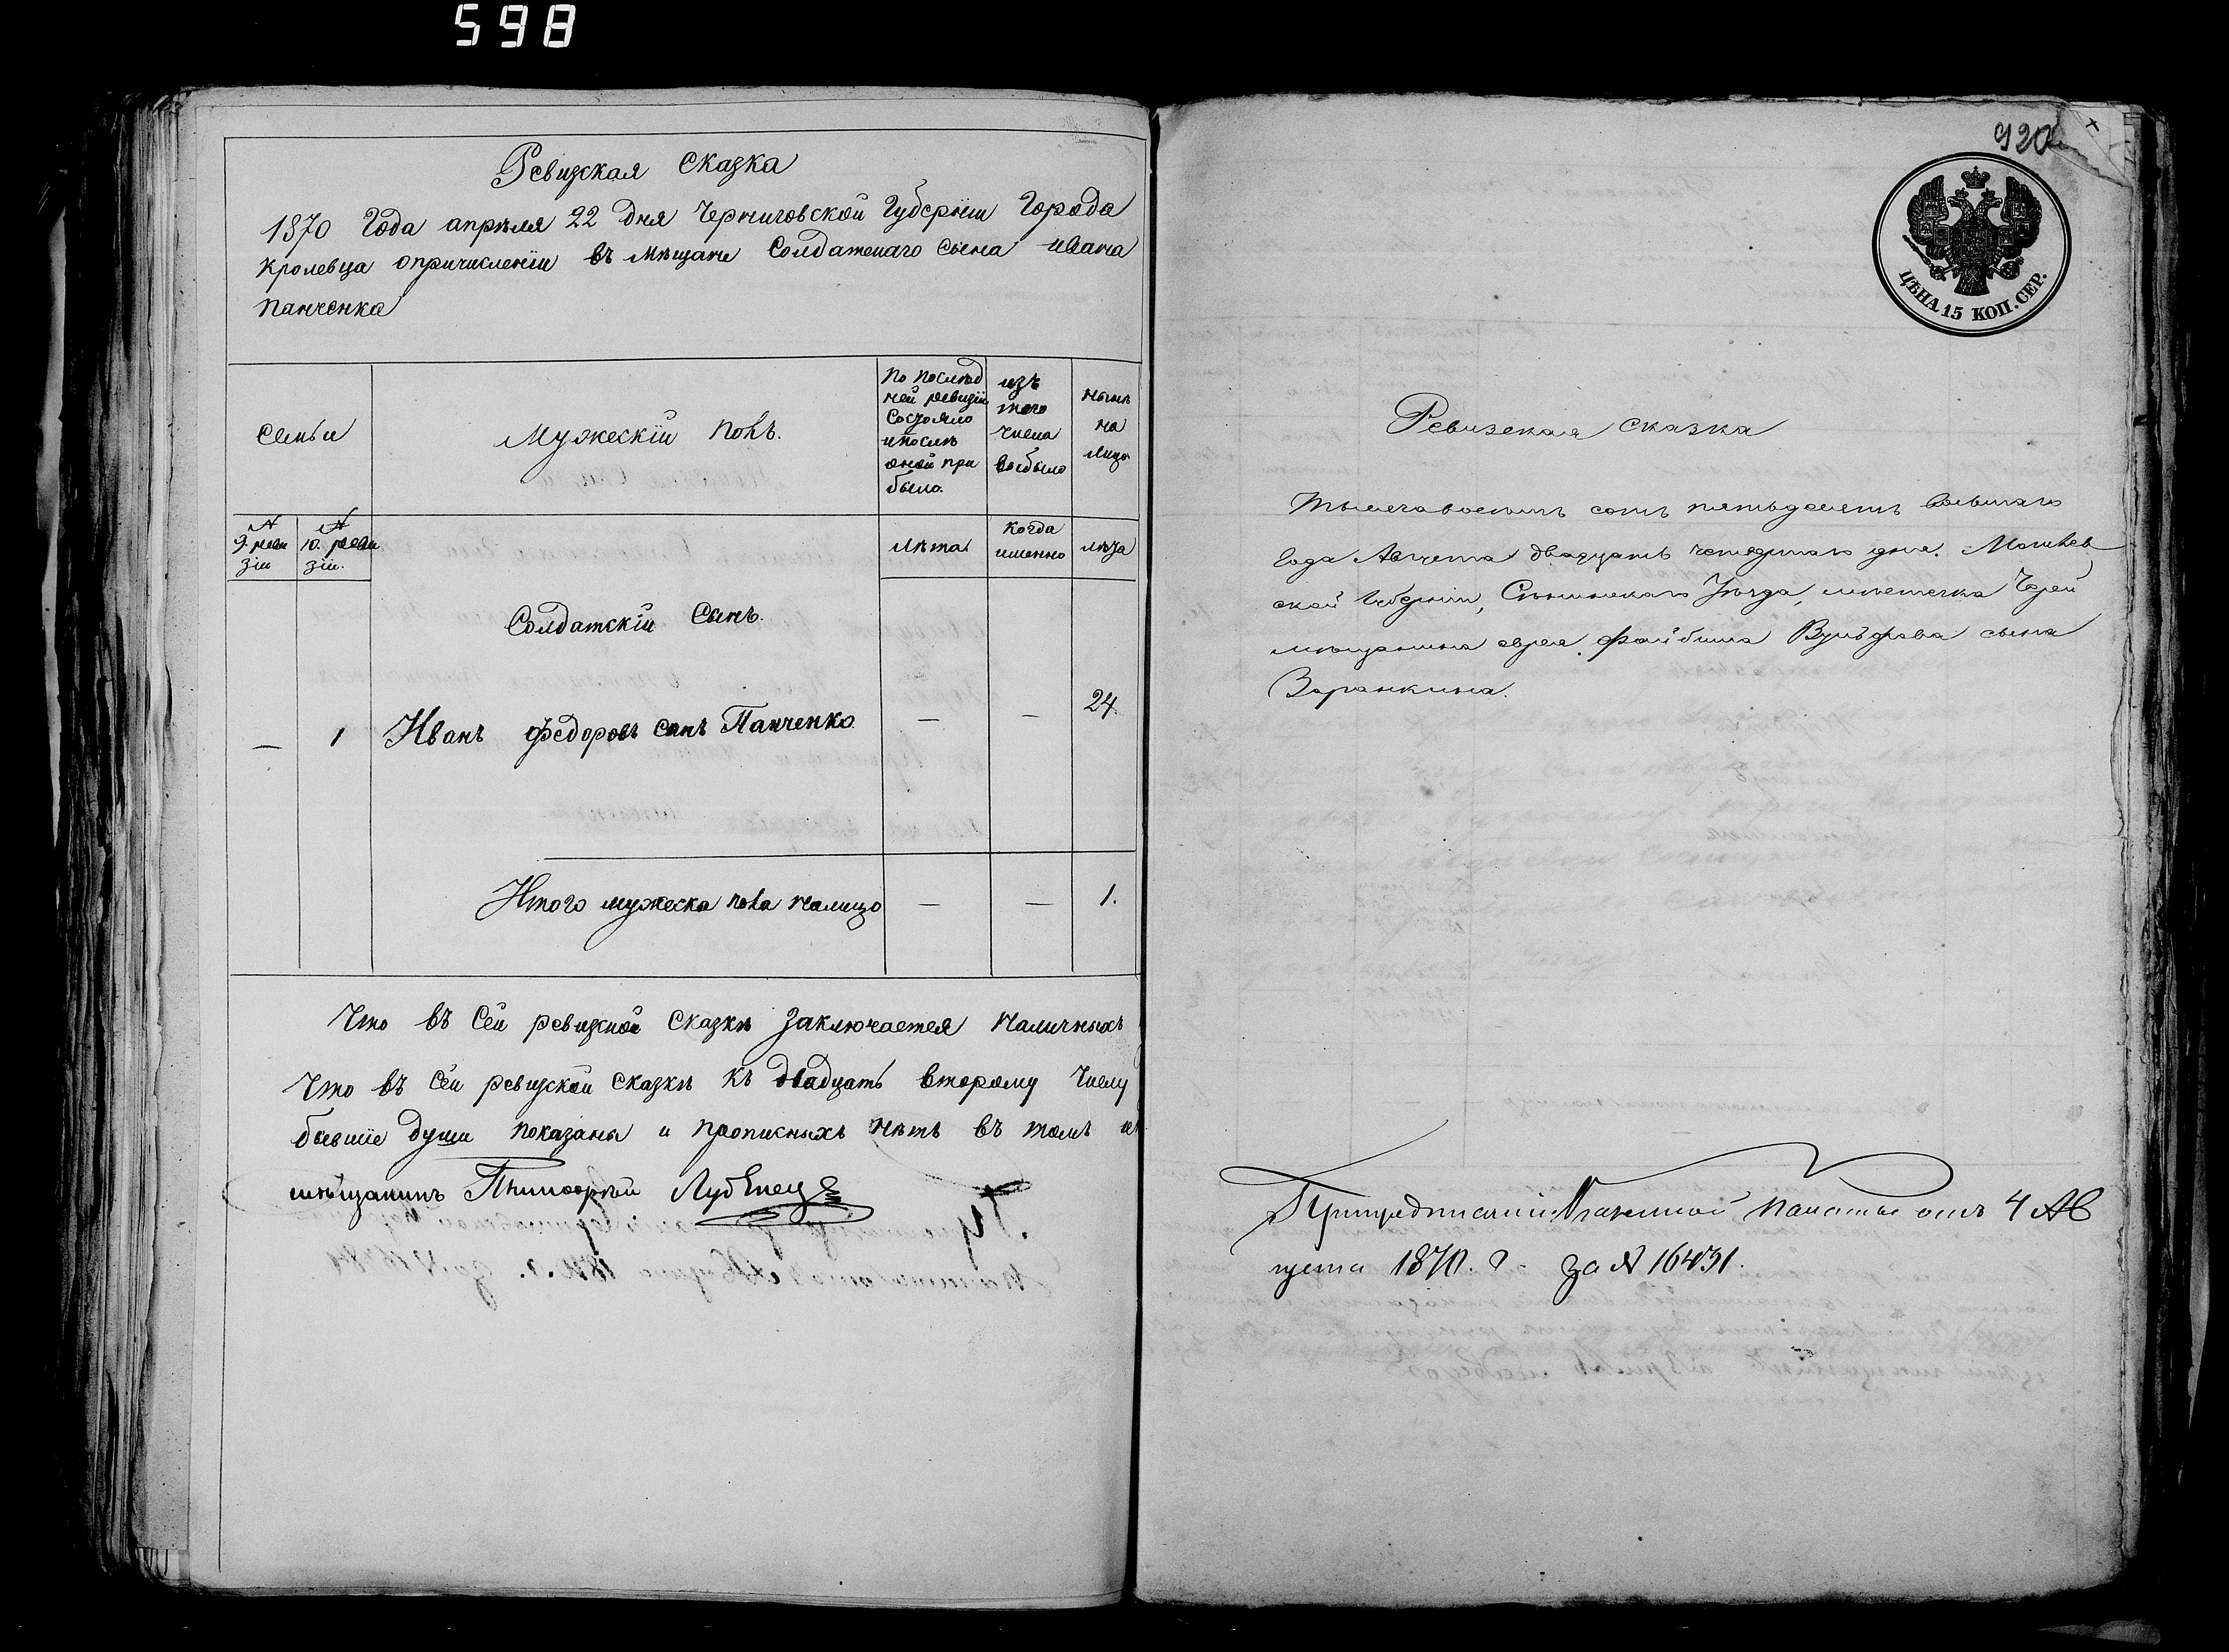 598
Ревизская сказка
1870 Года апрѣля 22 дня Черниговской Губерніи Города
Кролевца опричисленіи въ мѣщане Солдатскаго сына ивана
Панченка
Семьи
Мужескій полъ.
По послѣд
ней ревизіи
Состояло
и послѣ
оной при
было.
изъ
того
числа
выбыло
нынѣ
на
лицо
№
9. реви
зіи
№
10. реви
зіи.
лѣта
когда
именно
лѣта
Солдатскій Сынъ.
— 1 Иванъ Федоровъ сынъ Панченко — — 24.
Итого мужеска пола налицо — — 1.
Что въ сей ревизкой сказкѣ заключается наличныхъ
Что въ сей ревизской сказкѣ къ двадцать второму числу
бывшіе души показаны и прописныхъ нѣтъ въ томъ и
мѣщанинъ
920
ЦѢНА 15 КОП. СЕР.
Ревизская сказка
Тысяча восемь сотъ пятьдесятъ восьмаго
Года Августа двадцать четвертаго дня. Могилев
ской Губерніи, Сѣнинскаго Уѣзда, мѣстечка Череи
мѣщанина еврея Файбиша Вульфова сына
Заранкина.
При предписаніи Казенной Палаты отъ 4 Ав
густа 1870. г. за № 16431.